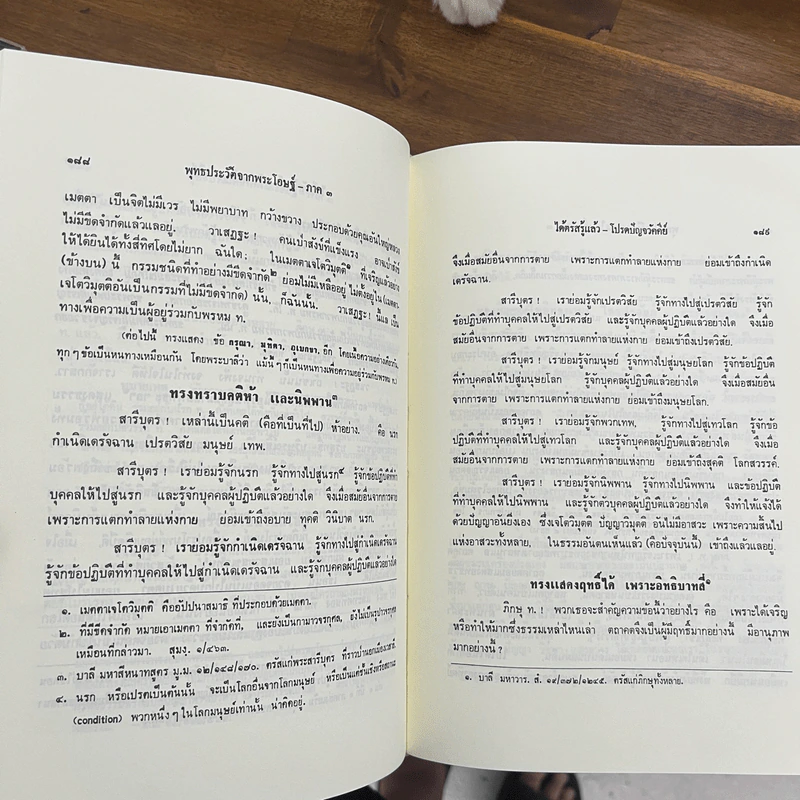 ๑๘๘
พุทธประวัติจากพระโอษฐ์ – ภาค ๓
เมตตา เป็นจิตไม่มีเวร ไม่มีพยาบาท กว้างขวาง ประกอบด้วยคุณอันใหญ่หลวง
ไม่มีขีดจำกัดแล้วแลอยู่. วาเสฏฐะ! คนเป่าสังข์ที่แข็งแรง อาจเป่าสังข์
ให้ได้ยินได้ทั้งสี่ทิศโดยไม่ยาก ฉันใด; ในเมตตาเจโตวิมุตติ๑ ที่เจริญแล้วอย่าง
(ข้างบน) นี้ กรรมชนิดที่ทำอย่างมีขีดจำกัด๒ ย่อมไม่มีเหลืออยู่ ไม่ตั้งอยู่ใน (เมตตา
เจโตวิมุตติอันเป็นกรรมที่ไม่มีขีดจำกัด) นั้น, ก็ฉันนั้น. วาเสฏฐะ! นี้แล เป็น
ทางเพื่อความเป็นผู้อยู่ร่วมกับพรหม ท.
(ต่อไปนี้ ทรงแสดง ข้อ กรุณา, มุทิตา, อุเบกขา, อีก โดยเนื้อความอย่างเดียวกัน,
ทุก ๆ ข้อเป็นหนทางเหมือนกัน โดยพระบาลีว่า แม้นี้ ๆ ก็เป็นหนทางเพื่อความอยู่ร่วมกับพรหม ท.)
ทรงทราบคติห้า และนิพพาน๓
สารีบุตร! เหล่านี้เป็นคติ (คือที่เป็นที่ไป) ห้าอย่าง. คือ นรก
กำเนิดเดรัจฉาน เปรตวิสัย มนุษย์ เทพ.
สารีบุตร! เราย่อมรู้จักนรก รู้จักทางไปสู่นรก๔ รู้จักข้อปฏิบัติที่ทำ
บุคคลให้ไปสู่นรก และรู้จักบุคคลผู้ปฏิบัติแล้วอย่างใด จึงเมื่อสมัยอื่นจากการตาย
เพราะการแตกทำลายแห่งกาย ย่อมเข้าถึงอบาย ทุคติ วินิบาต นรก.
สารีบุตร! เราย่อมรู้จักกำเนิดเดรัจฉาน รู้จักทางไปสู่กำเนิดเดรัจฉาน
รู้จักข้อปฏิบัติที่ทำบุคคลให้ไปสู่กำเนิดเดรัจฉาน และรู้จักบุคคลผู้ปฏิบัติแล้วอย่างใด
๑. เมตตาเจโตวิมุตติ คืออัปปนาสมาธิ ที่ประกอบด้วยเมตตา.
๒. ที่มีขีดจำกัด หมายเอาเมตตา ที่จำกัดที่, และยังเป็นกามาวจรกุศล, ยังไม่เป็นรูปาวจรกุศล
เหมือนที่กล่าวมา. สุมงฺ. ๑/๔๖๓.
๓. บาลี มหาสีหนาทสูตร มู.ม. ๑๒/๑๔๘/๑๗๐. ตรัสแก่พระสารีบุตร
๔. นรก หรือเปรตเป็นต้นนั้น จะเป็นโลกอื่นจากโลกมนุษย์
(condition) พวกหนึ่ง ๆ ในโลกมนุษย์เท่านั้น น่าคิดอยู่.
ได้ตรัสรู้แล้ว – โปรดปัญจวัคคีย์
๑๘๙
จึงเมื่อสมัยอื่นจากการตาย เพราะการแตกทำลายแห่งกาย ย่อมเข้าถึงกำเนิด
เดรัจฉาน.
สารีบุตร! เราย่อมรู้จักเปรตวิสัย รู้จักทางไปสู่เปรตวิสัย รู้จัก
ข้อปฏิบัติที่ทำบุคคลให้ไปสู่เปรตวิสัย และรู้จักบุคคลผู้ปฏิบัติแล้วอย่างใด จึงเมื่อ
สมัยอื่นจากการตาย เพราะการแตกทำลายแห่งกาย ย่อมเข้าถึงเปรตวิสัย.
สารีบุตร! เราย่อมรู้จักมนุษย์ รู้จักทางไปสู่มนุษยโลก รู้จักข้อปฏิบัติ
ที่ทำบุคคลให้ไปสู่มนุษยโลก และรู้จักบุคคลผู้ปฏิบัติแล้วอย่างใด จึงเมื่อสมัยอื่น
จากการตาย เพราะการแตกทำลายแห่งกาย ย่อมเข้าถึงมนุษยโลก.
สารีบุตร! เราย่อมรู้จักพวกเทพ, รู้จักทางไปสู่เทวโลก รู้จักข้อ
ปฏิบัติที่ทำบุคคลให้ไปสู่เทวโลก และรู้จักบุคคลผู้ปฏิบัติแล้วอย่างใด จึงเมื่อ
สมัยอื่นจากการตาย เพราะการแตกทำลายแห่งกาย ย่อมเข้าถึงสุคติ โลกสวรรค์.
สารีบุตร! เราย่อมรู้จักนิพพาน รู้จักทางไปสู่นิพพาน และข้อปฏิบัติ
ที่ทำบุคคลให้ไปสู่นิพพาน และรู้จักตัวบุคคลผู้ปฏิบัติแล้วอย่างใด จึงทำให้แจ้งได้
ด้วยปัญญาอันยิ่งเอง ซึ่งเจโตวิมุตติ ปัญญาวิมุตติ อันไม่มีอาสวะ เพราะความสิ้นไป
แห่งอาสวะทั้งหลาย, ในธรรมอันตนเห็นแล้ว (คือปัจจุบันนี้) เข้าถึงแล้วแลอยู่.
ทรงแสดงฤทธิ์ได้ เพราะอิทธิบาทสี่๑
ภิกษุ ท.! พวกเธอจะสำคัญความข้อนี้ว่าอย่างไร คือ เพราะได้เจริญ
หรือทำให้มากซึ่งธรรมเหล่าไหนเล่า ตถาคตจึงเป็นผู้มีฤทธิ์มากอย่างนี้ มีอานุภาพ
มากอย่างนี้?
๑. บาลี มหาวาร. สํ. ๑๙/๓๗๒/๑๒๔๕. ตรัสแก่ภิกษุทั้งหลาย.